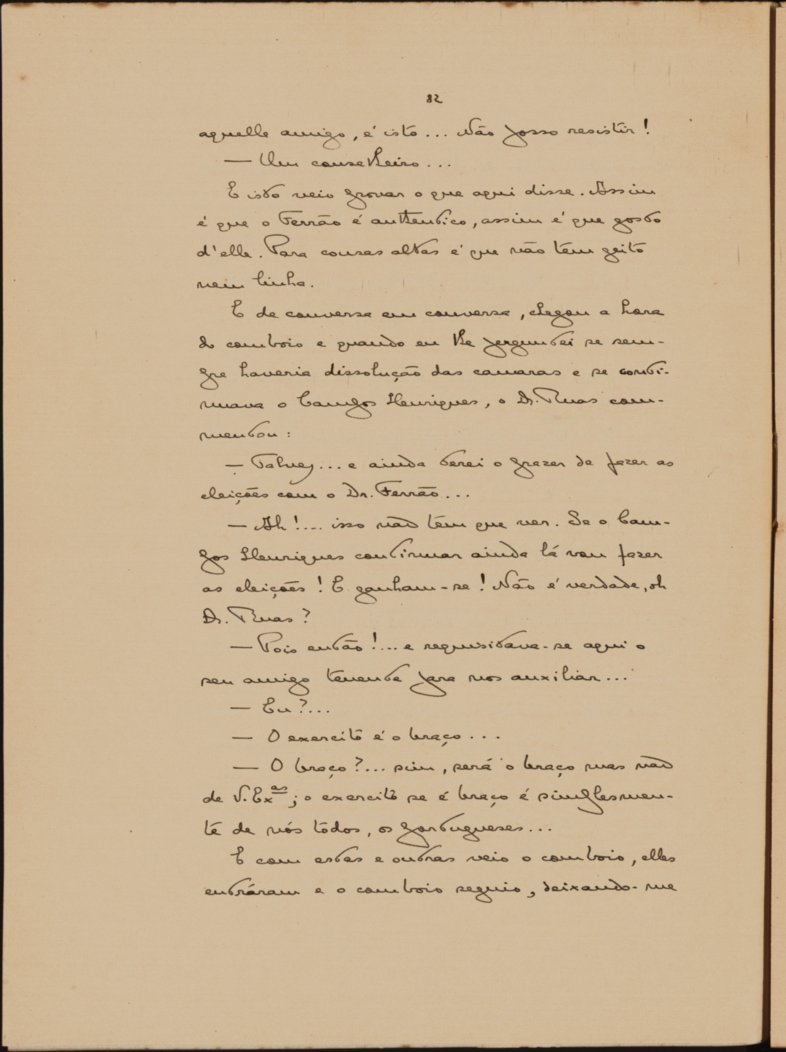 82
aquelle amigo, é isto... Não posso resistir!
— Um conselheiro...
E isto veio provar o que aqui disse. Assim
é que o Ferrão é authentico, assim é que gosto
d'elle. Para cousas altas é que não tem geito
nem linha.
E de conversa em conversa, chegou a hora
do comboio e quando eu lhe perguntei se sem-
pre haveria dissolução das camaras e se conti-
nuava o Campos Henriques, o Dr. Ruas com-
mentou:
— Talvez... e ainda terei o prazer de fazer as
eleições com o Dr. Ferrão...
— Ah!... isso não tem que ver. Se o Cam-
pos Henriques continuar ainda lá vou fazer
as eleições! E ganham-se! Não é verdade, oh
Dr. Ruas?
— Pois então!... e requisitava-se aqui o
seu amigo tenente para nos auxiliar...
— Eu?...
— O exercito é o braço...
— O braço?... sim, será o braço mas não
de V. Ex.as; o exercito se é braço é simplesmen-
te de nós todos, os portugueses...
E com estas e outras veio o comboio, elles
entráram e o comboio seguio, deixando-me